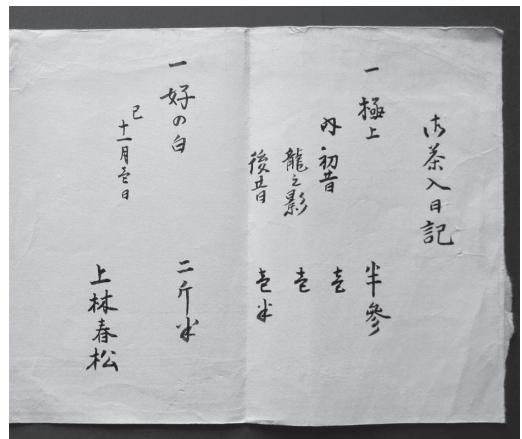 御茶入日記
一 極上 半參
内 初昔 壱
龍之影 壱
後昔 壱半
一 好の白 二斤半
巳十一月壱日
上林春松